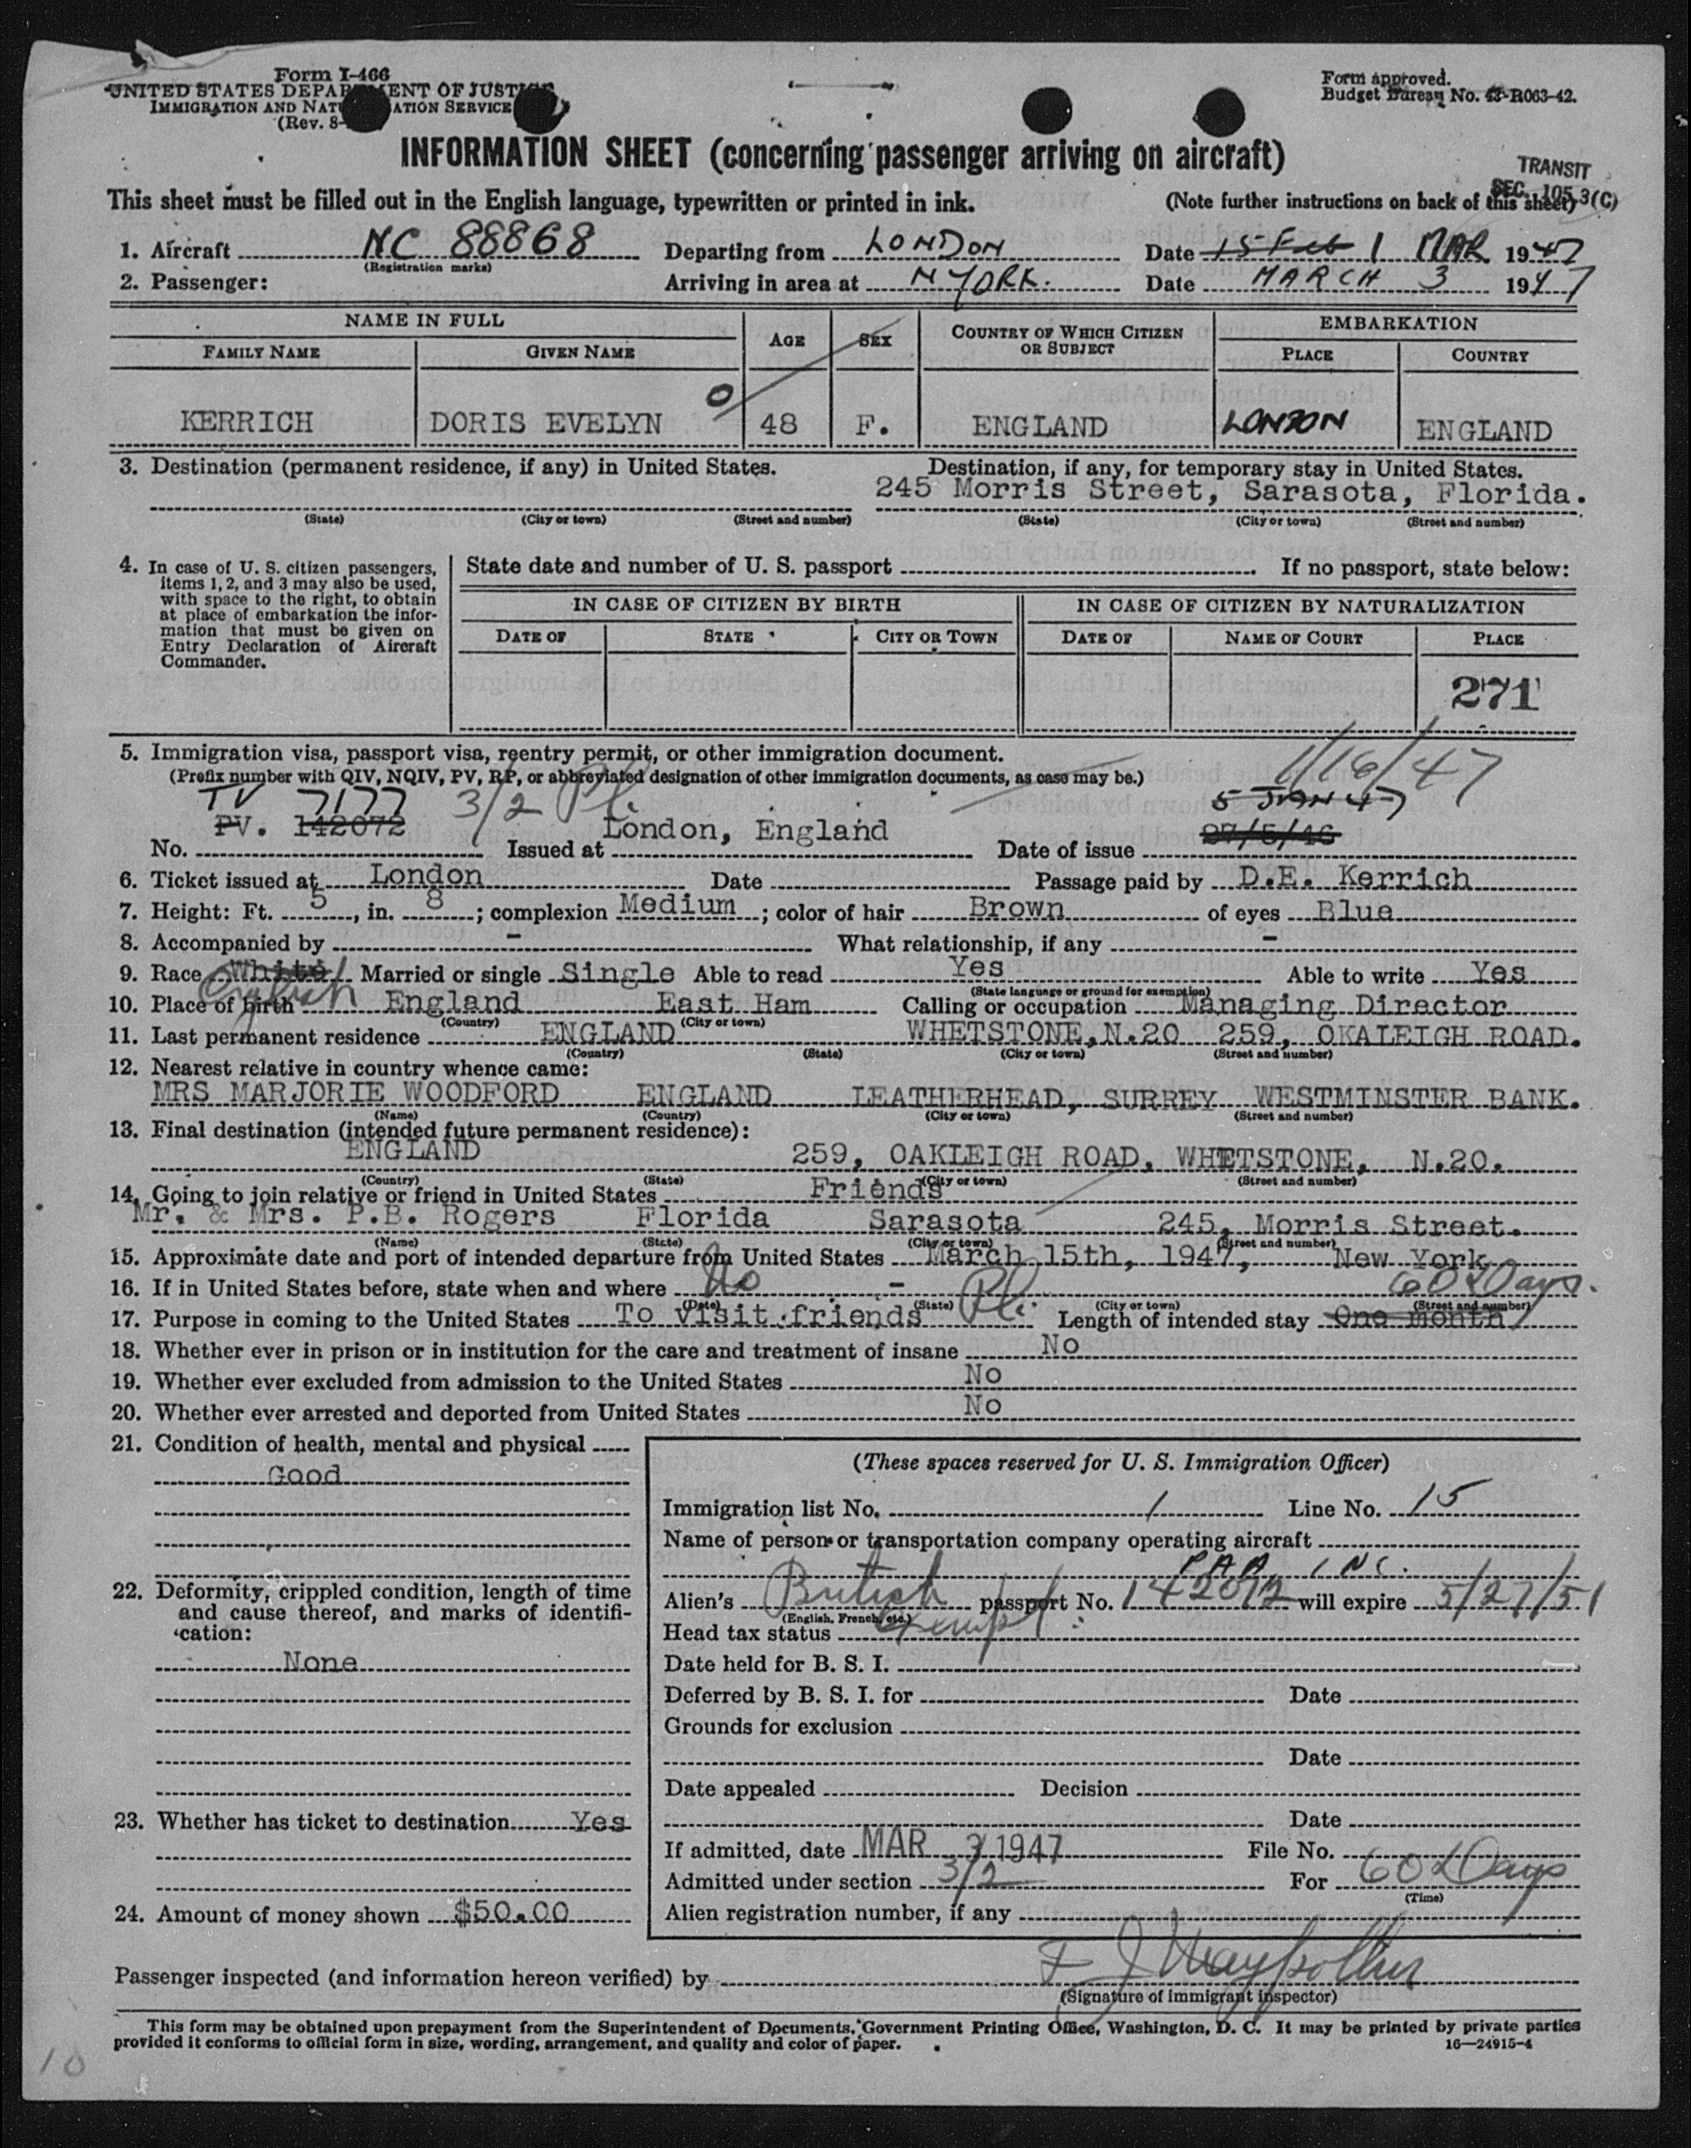 Form I-466
UNITED STATES DEPARTMENT OF JUSTICE
IMMIGRATION AND NATURALIZATION SERVICE
(Rev. 8-
Form approved.
Budget Bureau No. 43-R063-42.
INFORMATION SHEET (concerning passenger arriving on aircraft)
TRANSIT
SEC. 105.3(C)
This sheet must be filled out in the English language, typewritten or printed in ink. (Note further instructions on back of this sheet)
1. Aircraft NC 88868 Departing from LONDON Date 15 Feb 1 MAR 1947
(Registration marks)
2. Passenger: Arriving in area at N YORK. Date MARCH 3 1947
NAME IN FULL AGE SEX COUNTRY OF WHICH CITIZEN OR SUBJECT EMBARKATION
FAMILY NAME GIVEN NAME PLACE COUNTRY
0
KERRICH DORIS EVELYN 48 F. ENGLAND LONDON ENGLAND
3. Destination (permanent residence, if any) in United States. Destination, if any, for temporary stay in United States.
245 Morris Street, Sarasota, Florida.
(State) (City or town) (Street and number) (State) (City or town) (Street and number)
4. In case of U. S. citizen passengers, items 1, 2, and 3 may also be used, with space to the right, to obtain at place of embarkation the information that must be given on Entry Declaration of Aircraft Commander.
State date and number of U. S. passport . If no passport, state below:
IN CASE OF CITIZEN BY BIRTH IN CASE OF CITIZEN BY NATURALIZATION
DATE OF STATE CITY OR TOWN DATE OF NAME OF COURT PLACE
271
5. Immigration visa, passport visa, reentry permit, or other immigration document.
(Prefix number with QIV, NQIV, PV, RP, or abbreviated designation of other immigration documents, as case may be.)
1/16/47
TV 7177 3/2 Pl. 5 JAN 47
PV. 142072 London, England 27/5/46
No. Issued at Date of issue
6. Ticket issued at London Date Passage paid by D.E. Kerrich
7. Height: Ft. 5, in. 8; complexion Medium; color of hair Brown of eyes Blue
8. Accompanied by - What relationship, if any -
9. Race White English Married or single Single Able to read Yes Able to write Yes
(State language or ground for exemption)
10. Place of birth England East Ham Calling or occupation Managing Director
(Country) (City or town)
11. Last permanent residence ENGLAND WHETSTONE, N.20 259, OKALEIGH ROAD.
(Country) (State) (City or town) (Street and number)
12. Nearest relative in country whence came:
MRS MARJORIE WOODFORD ENGLAND LEATHERHEAD, SURREY WESTMINSTER BANK.
(Name) (Country) (City or town) (Street and number)
13. Final destination (intended future permanent residence):
ENGLAND 259, OAKLEIGH ROAD, WHETSTONE, N.20.
(Country) (State) (City or town) (Street and number)
14. Going to join relative or friend in United States Friends
Mr. & Mrs. P.B. Rogers Florida Sarasota 245, Morris Street.
(Name) (State) (City or town) (Street and number)
15. Approximate date and port of intended departure from United States March 15th, 1947, New York
16. If in United States before, state when and where No - 60 Days.
(Date) (State) (City or town) (Street and number)
17. Purpose in coming to the United States To visit friends Pl. Length of intended stay One month
18. Whether ever in prison or in institution for the care and treatment of insane No
19. Whether ever excluded from admission to the United States No
20. Whether ever arrested and deported from United States No
21. Condition of health, mental and physical
Good
22. Deformity, crippled condition, length of time and cause thereof, and marks of identification:
None
23. Whether has ticket to destination Yes
24. Amount of money shown $50.00
(These spaces reserved for U. S. Immigration Officer)
Immigration list No. 1 Line No. 15
Name of person or transportation company operating aircraft
PAA INC.
Alien's British passport No. 142072 will expire 5/27/51
(English, French, etc.)
Head tax status Exempt
Date held for B. S. I.
Deferred by B. S. I. for Date
Grounds for exclusion
Date
Date appealed Decision
Date
If admitted, date MAR 3 1947 File No.
Admitted under section 3/2 For 60 Days
(Time)
Alien registration number, if any
Passenger inspected (and information hereon verified) by F J
(Signature of immigrant inspector)
This form may be obtained upon prepayment from the Superintendent of Documents, Government Printing Office, Washington, D. C. It may be printed by private parties
provided it conforms to official form in size, wording, arrangement, and quality and color of paper. 16—24915-4
10